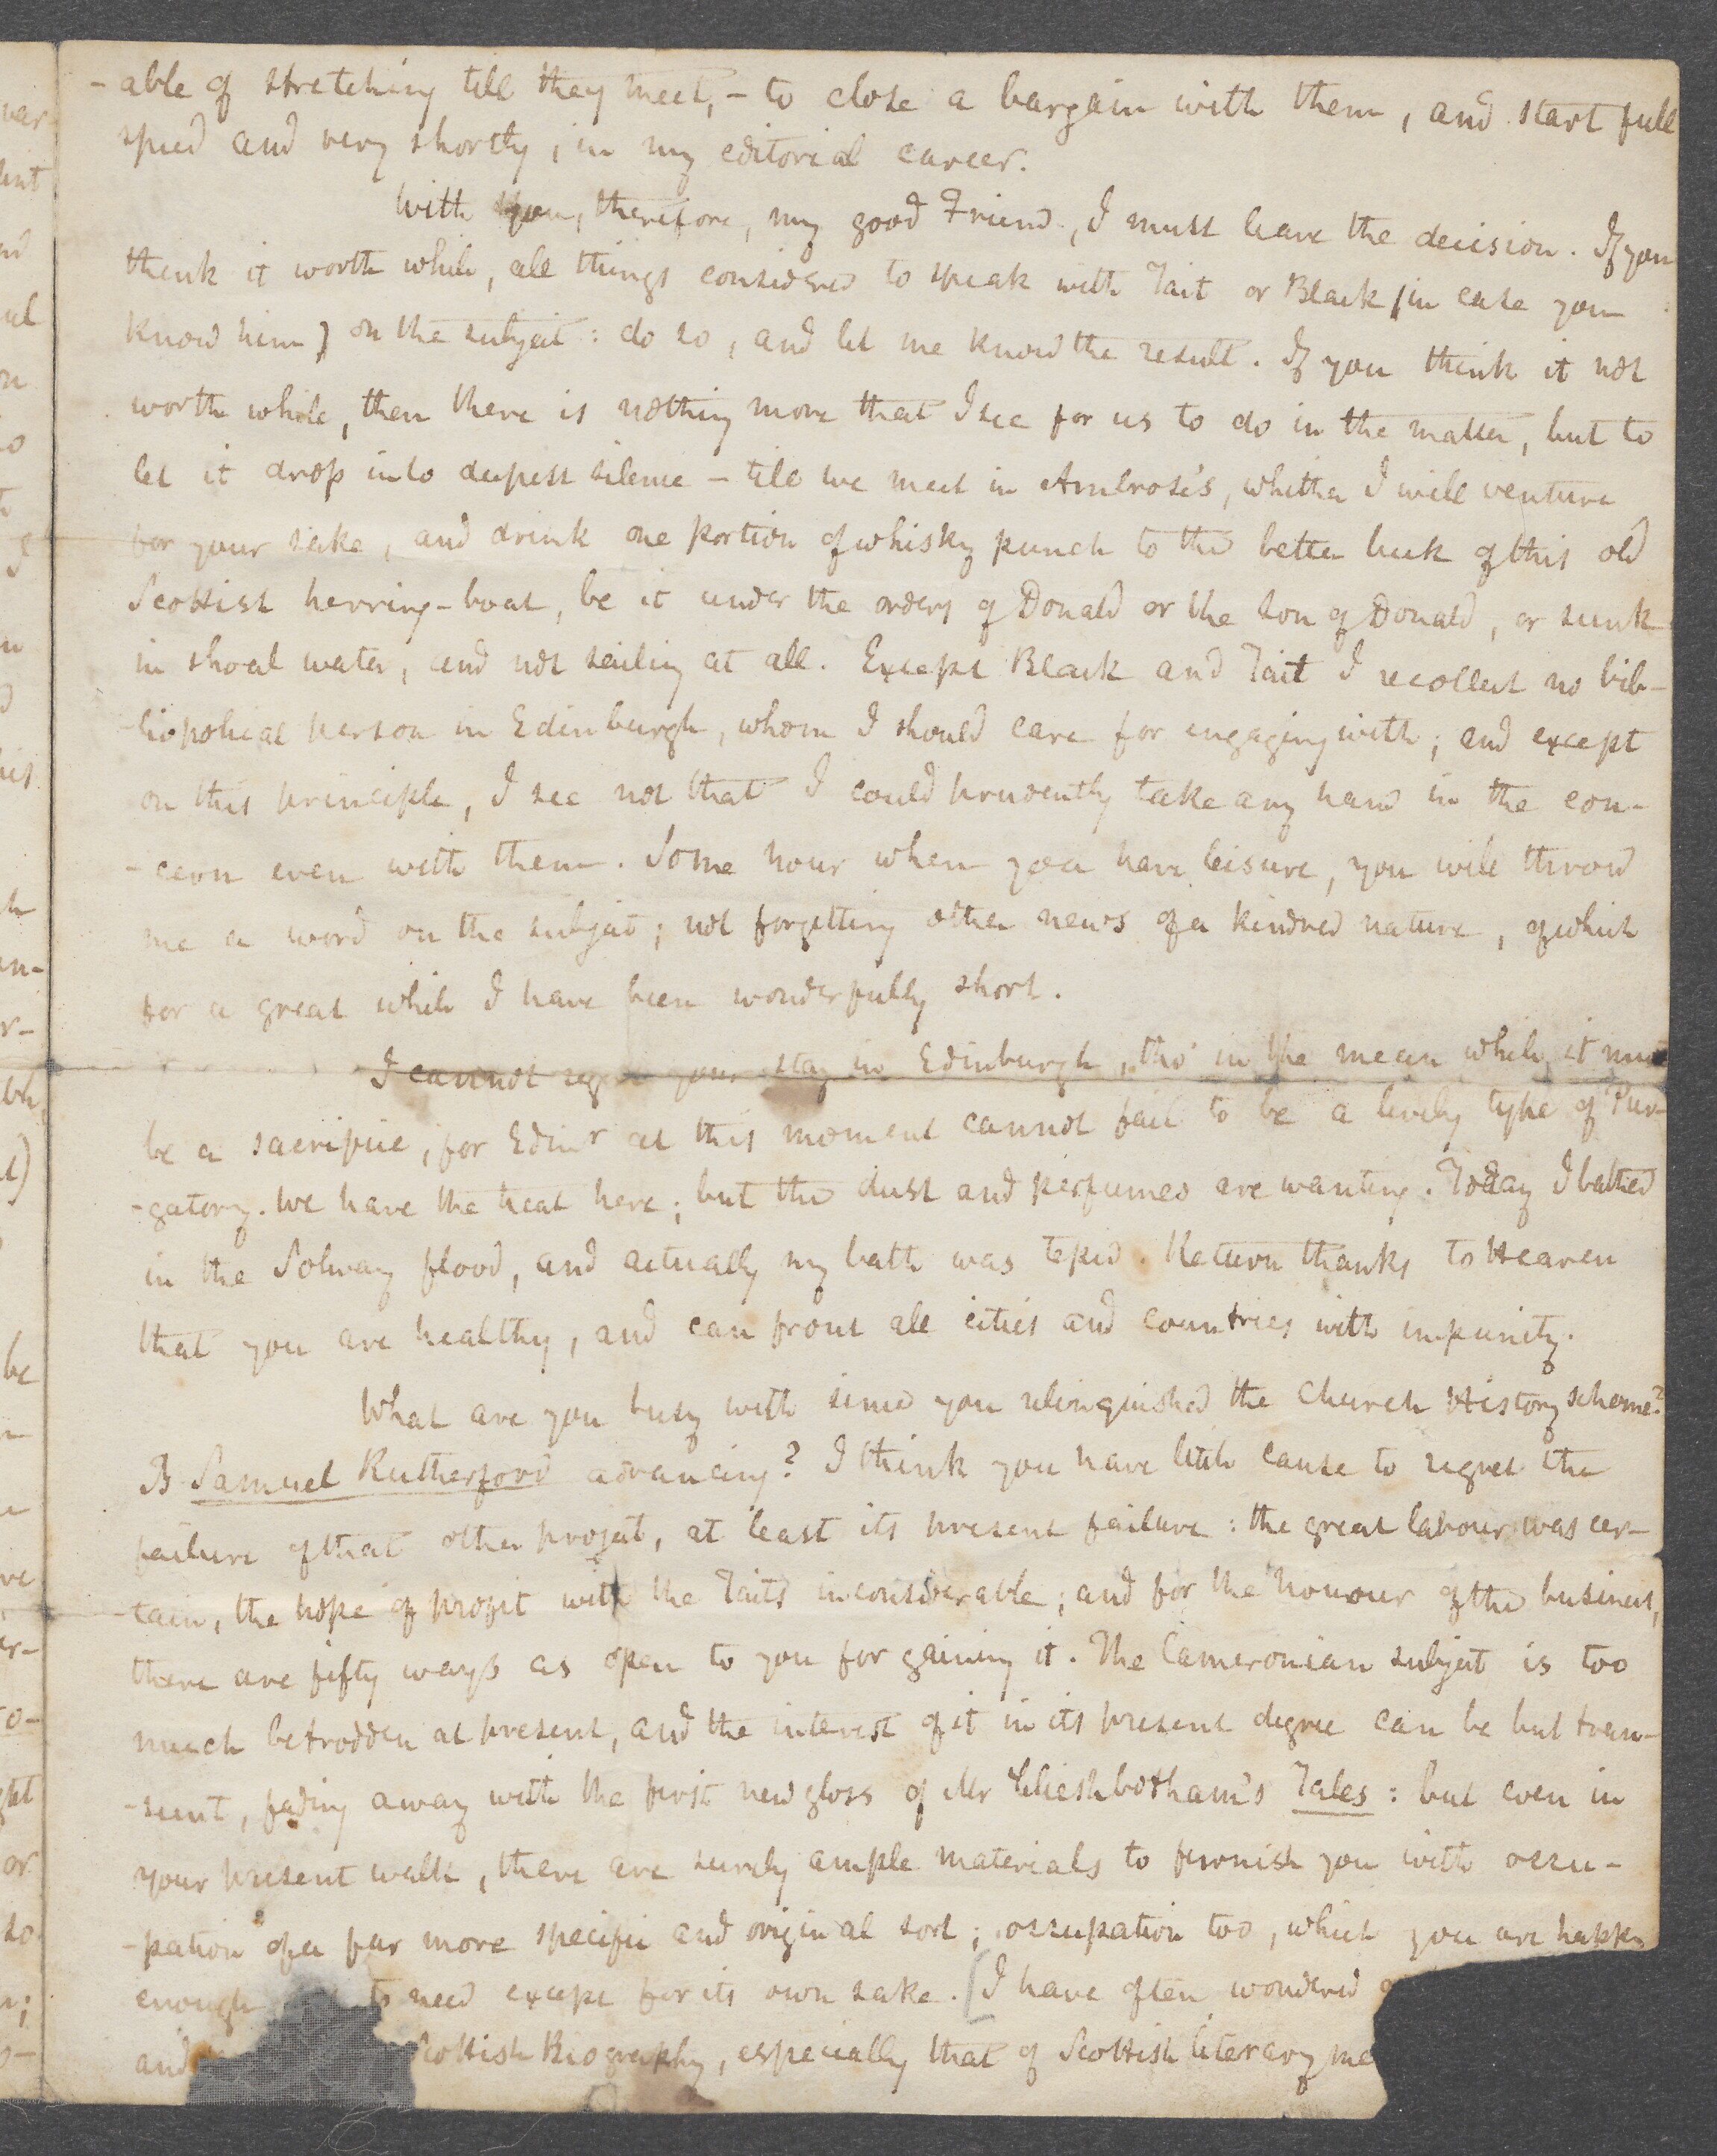 -able of stretching till they meet, – to close a bargain with them, and start full
speed and very shortly, in my editorial career.
With you, therefore, my good Friend, I must leave the decision. If you
think it worth while, all things considered to speak with Tait or Black (in case you
know him) on the subject: do so, and let me know the result. If you think it not
worth while, then there is nothing more that I see for us to do in the matter, but to
let it drop into deepest silence – till we meet in Ambrose's, whither I will venture
for your sake, and drink one portion of whisky punch to the better luck of this old
Scottish herring-boat, be it under the orders of Donald or the son of Donald, or sunk
in shoal water, and not sailing at all. Except Black and Tait I recollect no bib-
-liopolical person in Edinburgh, whom I should care for engaging with; and except
on this principle, I see not that I could prudently take any hand in the con-
-cern even with them. Some hour when you have leisure, you will throw
me a word on the subject; not forgetting other news of a kindred nature, of which
for a great while I have been wonderfully short.
I cannot your stay in Edinburgh, tho' in the mean while it
be a sacrifice, for Edinr at this moment cannot fail to be a lively type of Pur-
-gatory. We have the heat here; but the dust and perfumes are wanting. Today I bathed
in the Solway flood, and actually my bath was tepid. Return thanks to Heaven
that you are healthy, and can front all cities and countries with impunity.
What are you busy with since you relinquished the Church History scheme?
Is Samuel Rutherford advancing? I think you have little cause to regret the
failure of that other project, at least its present failure: the great labour was cer-
-tain, the hope of profit with the Taits inconsiderable; and for the honour of the business,
there are fifty ways as open to you for gaining it. The Cameronian subject is too
much betrodden at present, and the interest of it in its present degree can be but tran-
-sient, fading away with the first new gloss of Mr Cleishbotham's Tales: but even in
your present walk, there are surely ample materials to furnish you with occu-
-pation of a far more specific and original sort; occupation too, which you are happy
enough to need except for its own sake. [I have often wondered
and Scottish Biography, especially that of Scottish literary